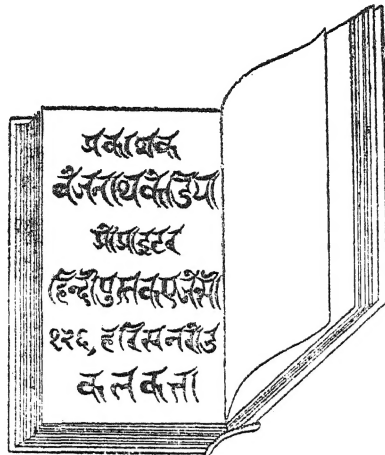 प्रकाशक
बैजनाथ केडिया
प्रोप्राइटर
हिन्दी पुस्तक एजेंसी
१२६, हरिसन रोड
कलकत्ता